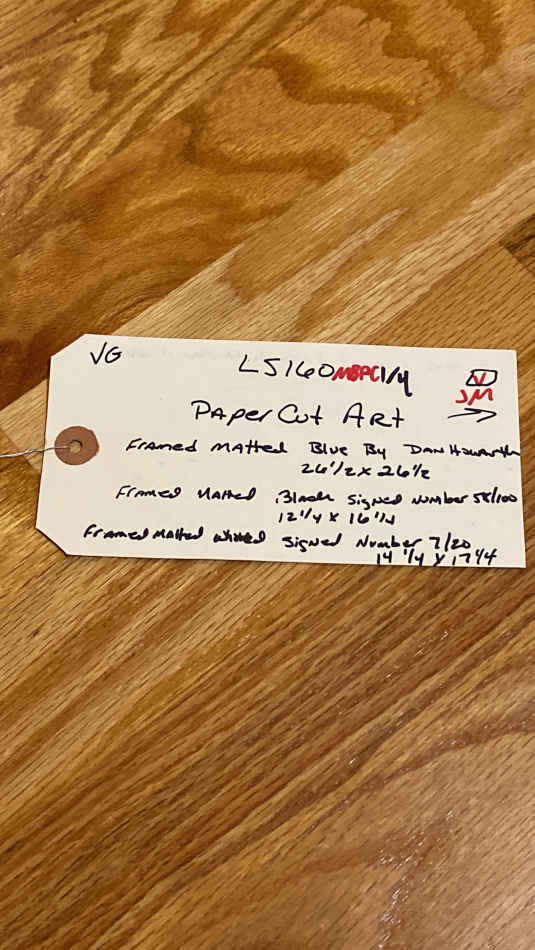 VG
LS160MBPC1/4
V
JM
Paper Cut Art
Framed Matted Blue By Dan Howarth
26 1/2 x 26 1/2
Framed Matted Black Signed Number 58/100
12 1/4 x 16 1/4
Framed Matted Signed Number 7/20
14 1/4 x 17 4/4